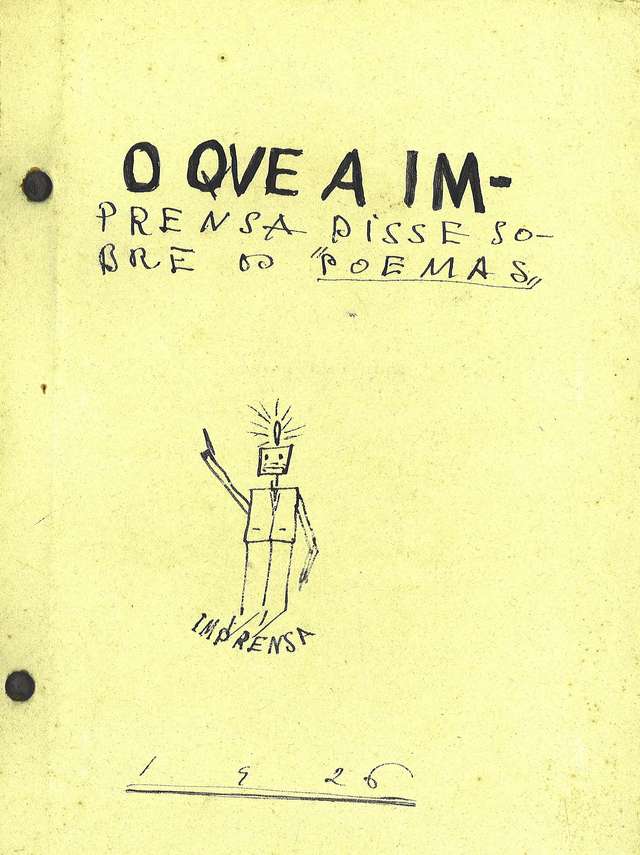 O QVE A IM-
PRENSA DISSE SO-
BRE OS "POEMAS"
IMPRENSA
1926